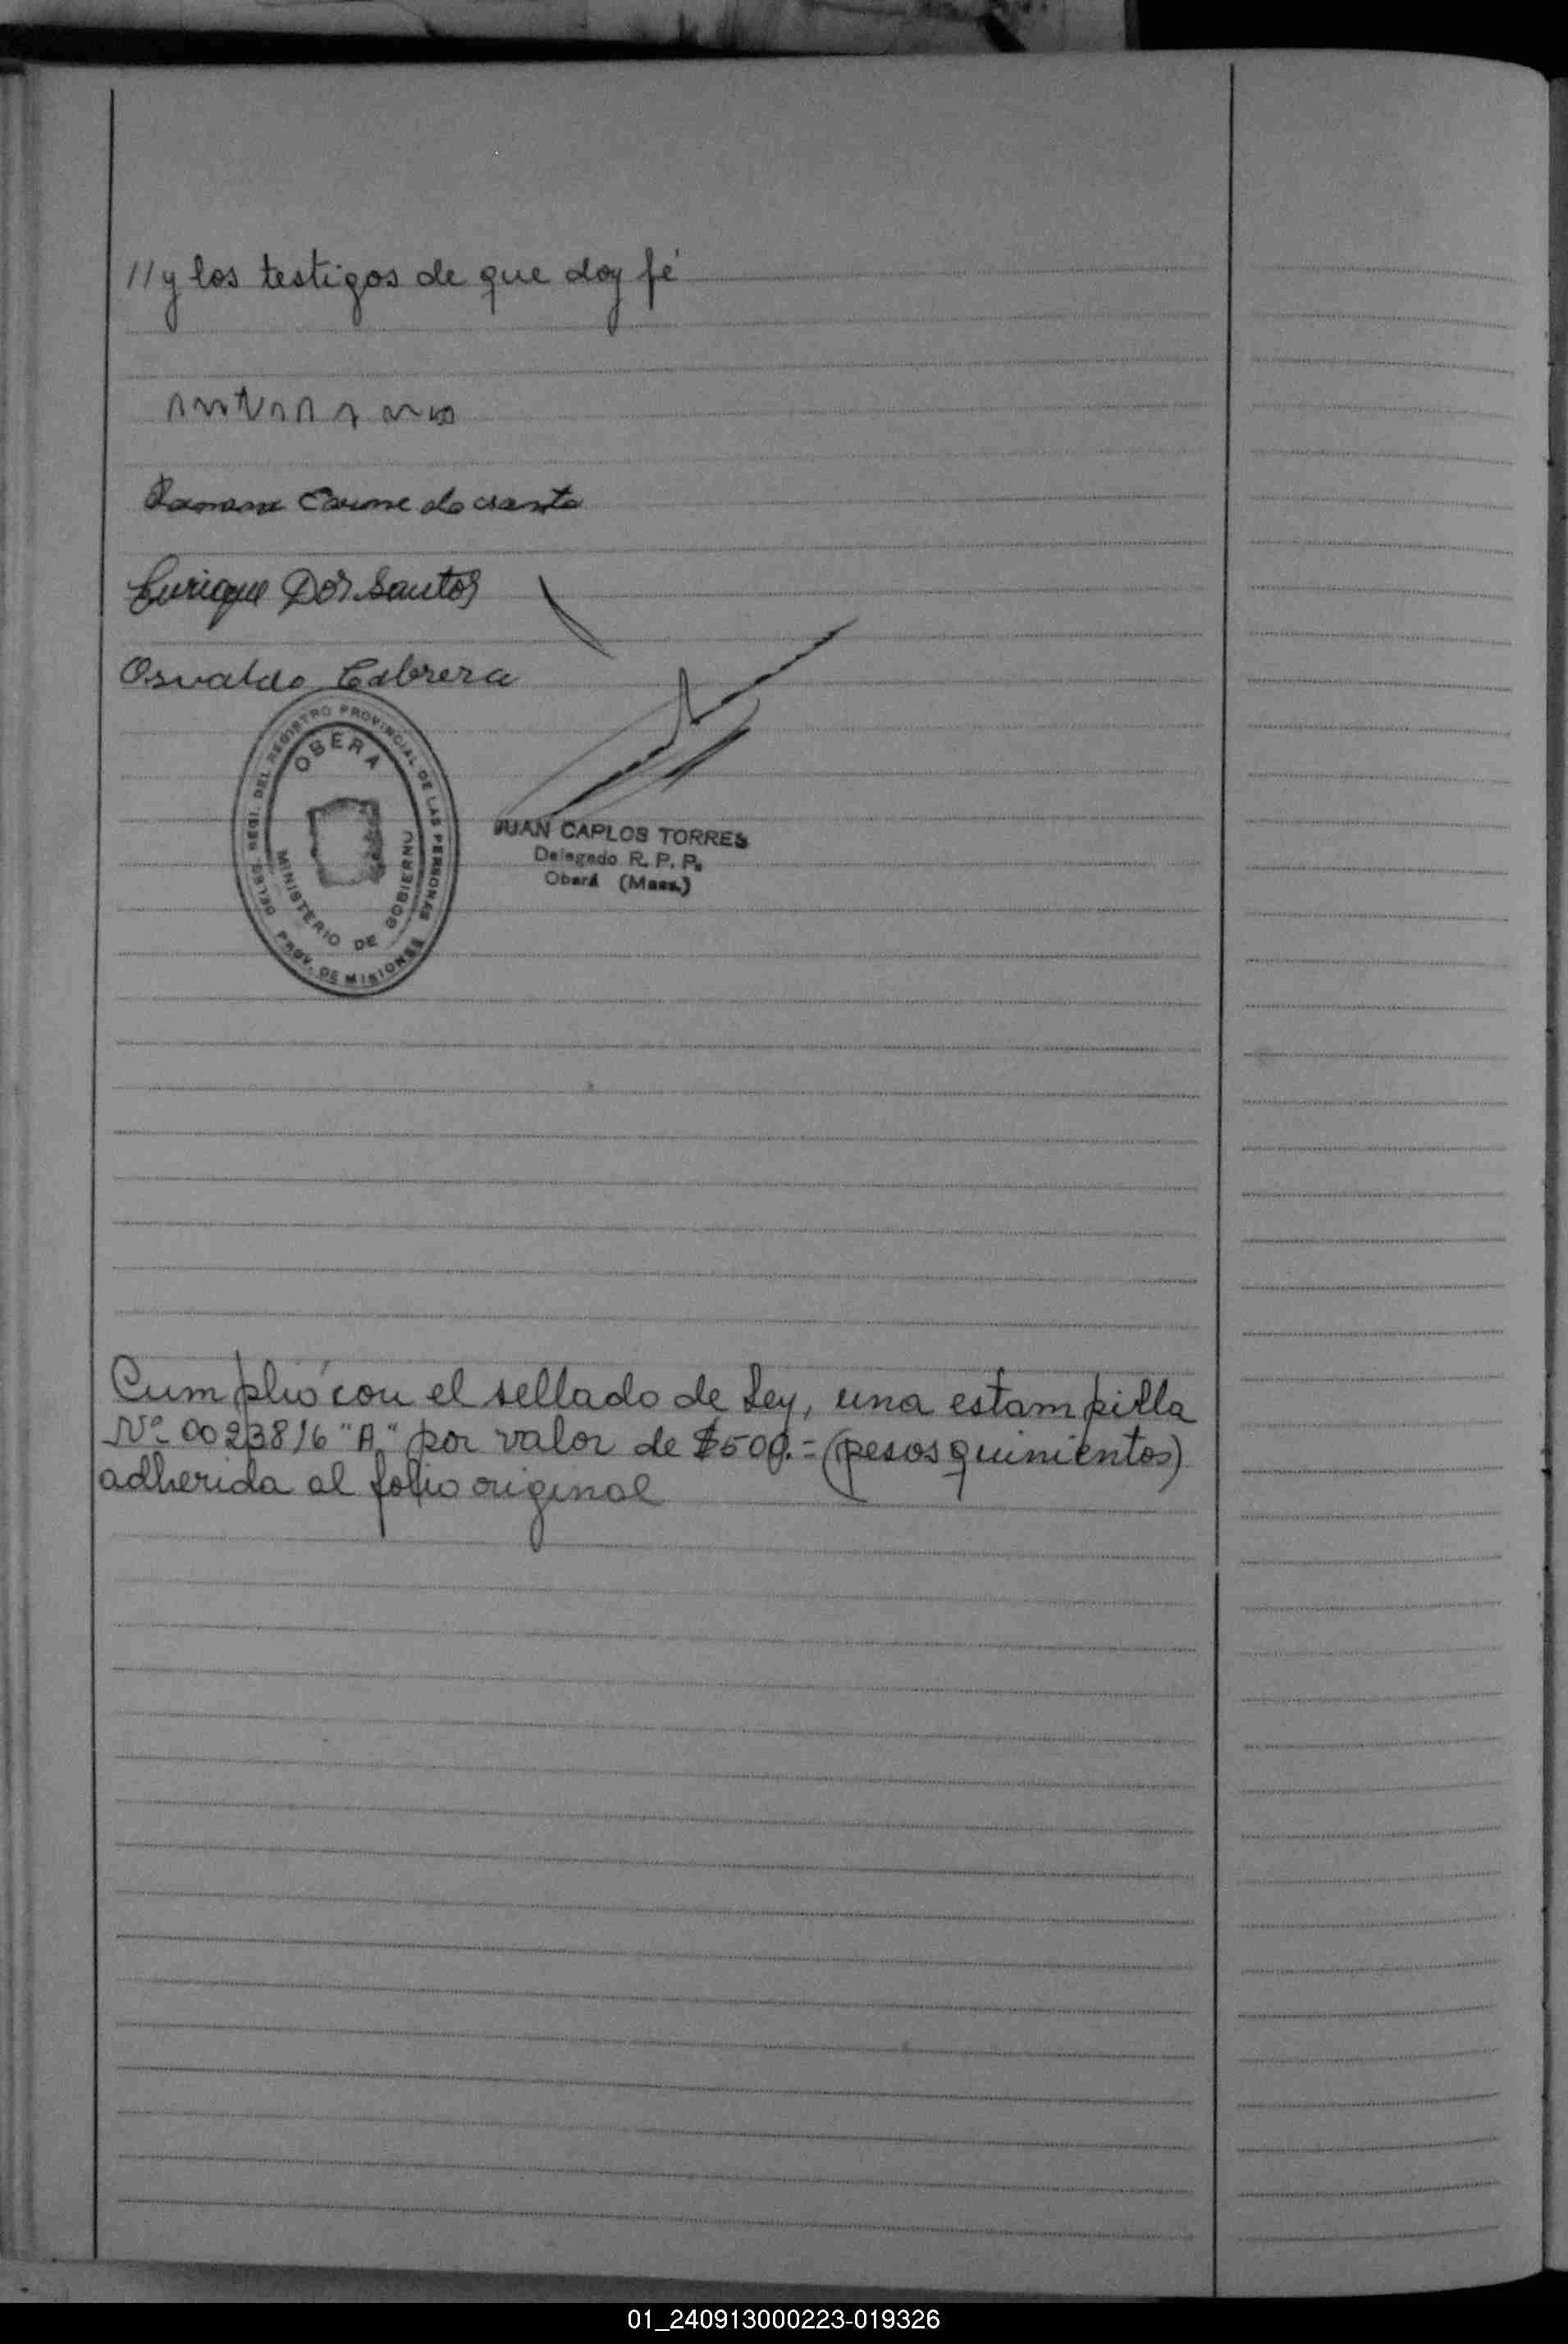 //y los testigos de que doy fé
Enrique Dos Santos
Osvaldo Cabrera
DEL REGISTRO PROVINCIAL DE LAS PERSONAS
OBERA
MINISTERIO DE GOBIERNO
PROV. DE MISIONES
JUAN CARLOS TORRES
Delegado R. P. P.
Oberá (Mnes.)
Cumplió con el sellado de Ley, una estampilla
Nº 0023816 "A" por valor de $500.= (pesos quinientos)
adherida al folio original
01_240913000223-019326